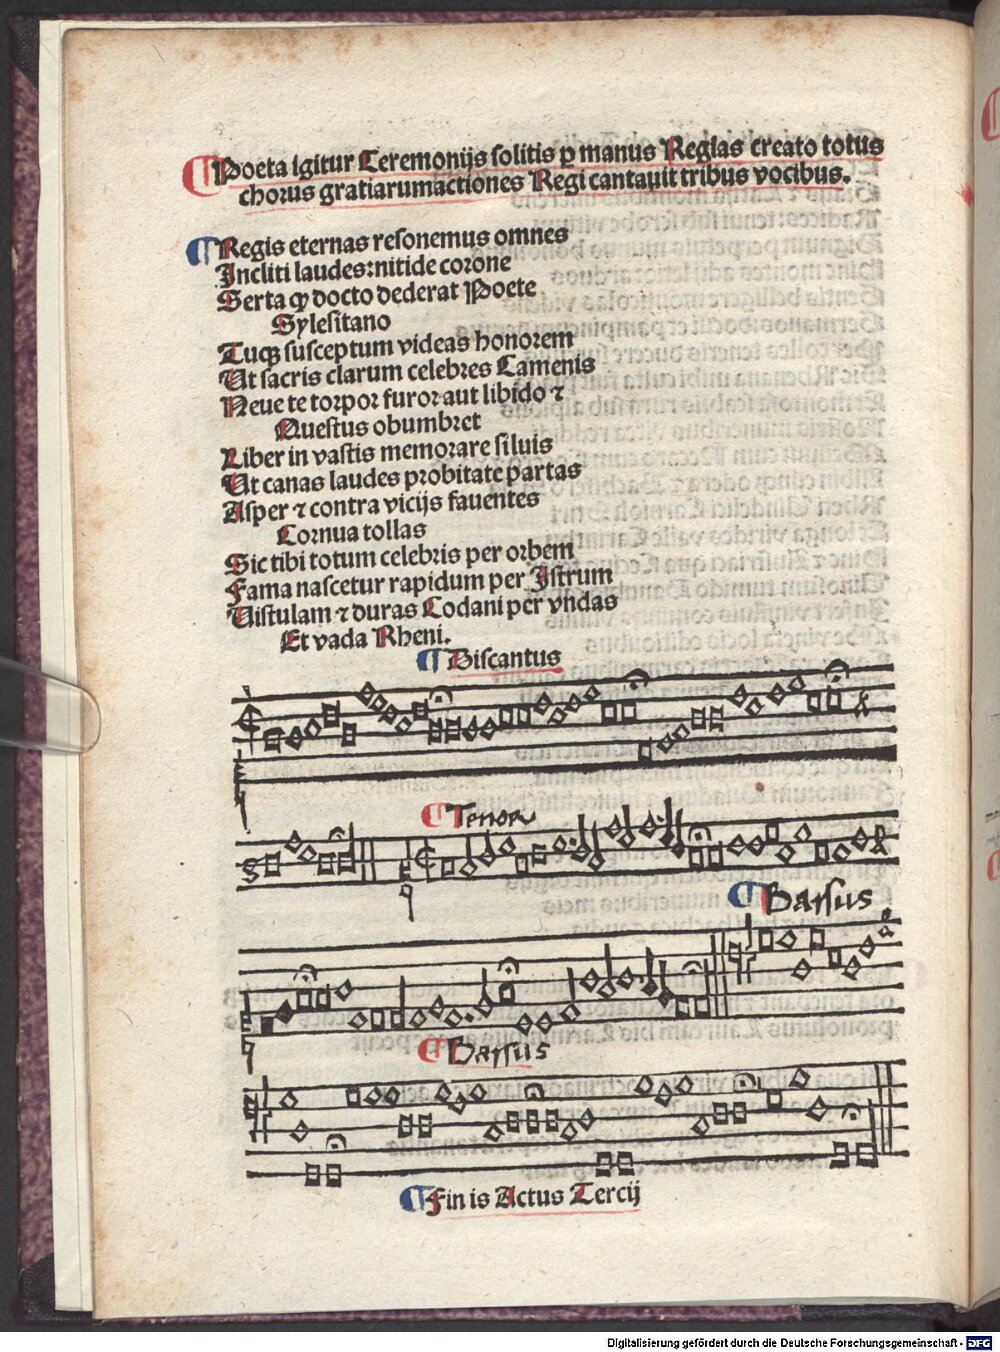 ¶Poeta igitur Ceremonijs solitis ꝑ manus Reglas creato totus
chorus gratiarumactiones Regi cantauit tribus vocibus.
¶Regis eternas resonemus omnes
Incliti laudes:nitide corone
Serta ꝙ docto dederat Poete
Sylesitano
Tuqꝫ susceptum videas honorem
Ut sacris clarum celebres Camenis
Neue te torpor furor aut libido ⁊
Questus obumbret
Liber in vastis memorare siluis
Ut canas laudes probitate partas
Asper ⁊ contra vicijs fauentes
Cornua tollas
Sic tibi totum celebris per orbem
Fama nascetur rapidum per Istrum
Uistulam ⁊ duras Codani per vndas
Et vada Rheni.
¶Discantus
¶Tenor
¶Bassus
¶Bassus
¶Fin is Actus Tercij
Digitalisierung gefördert durch die Deutsche Forschungsgemeinschaft - DFG